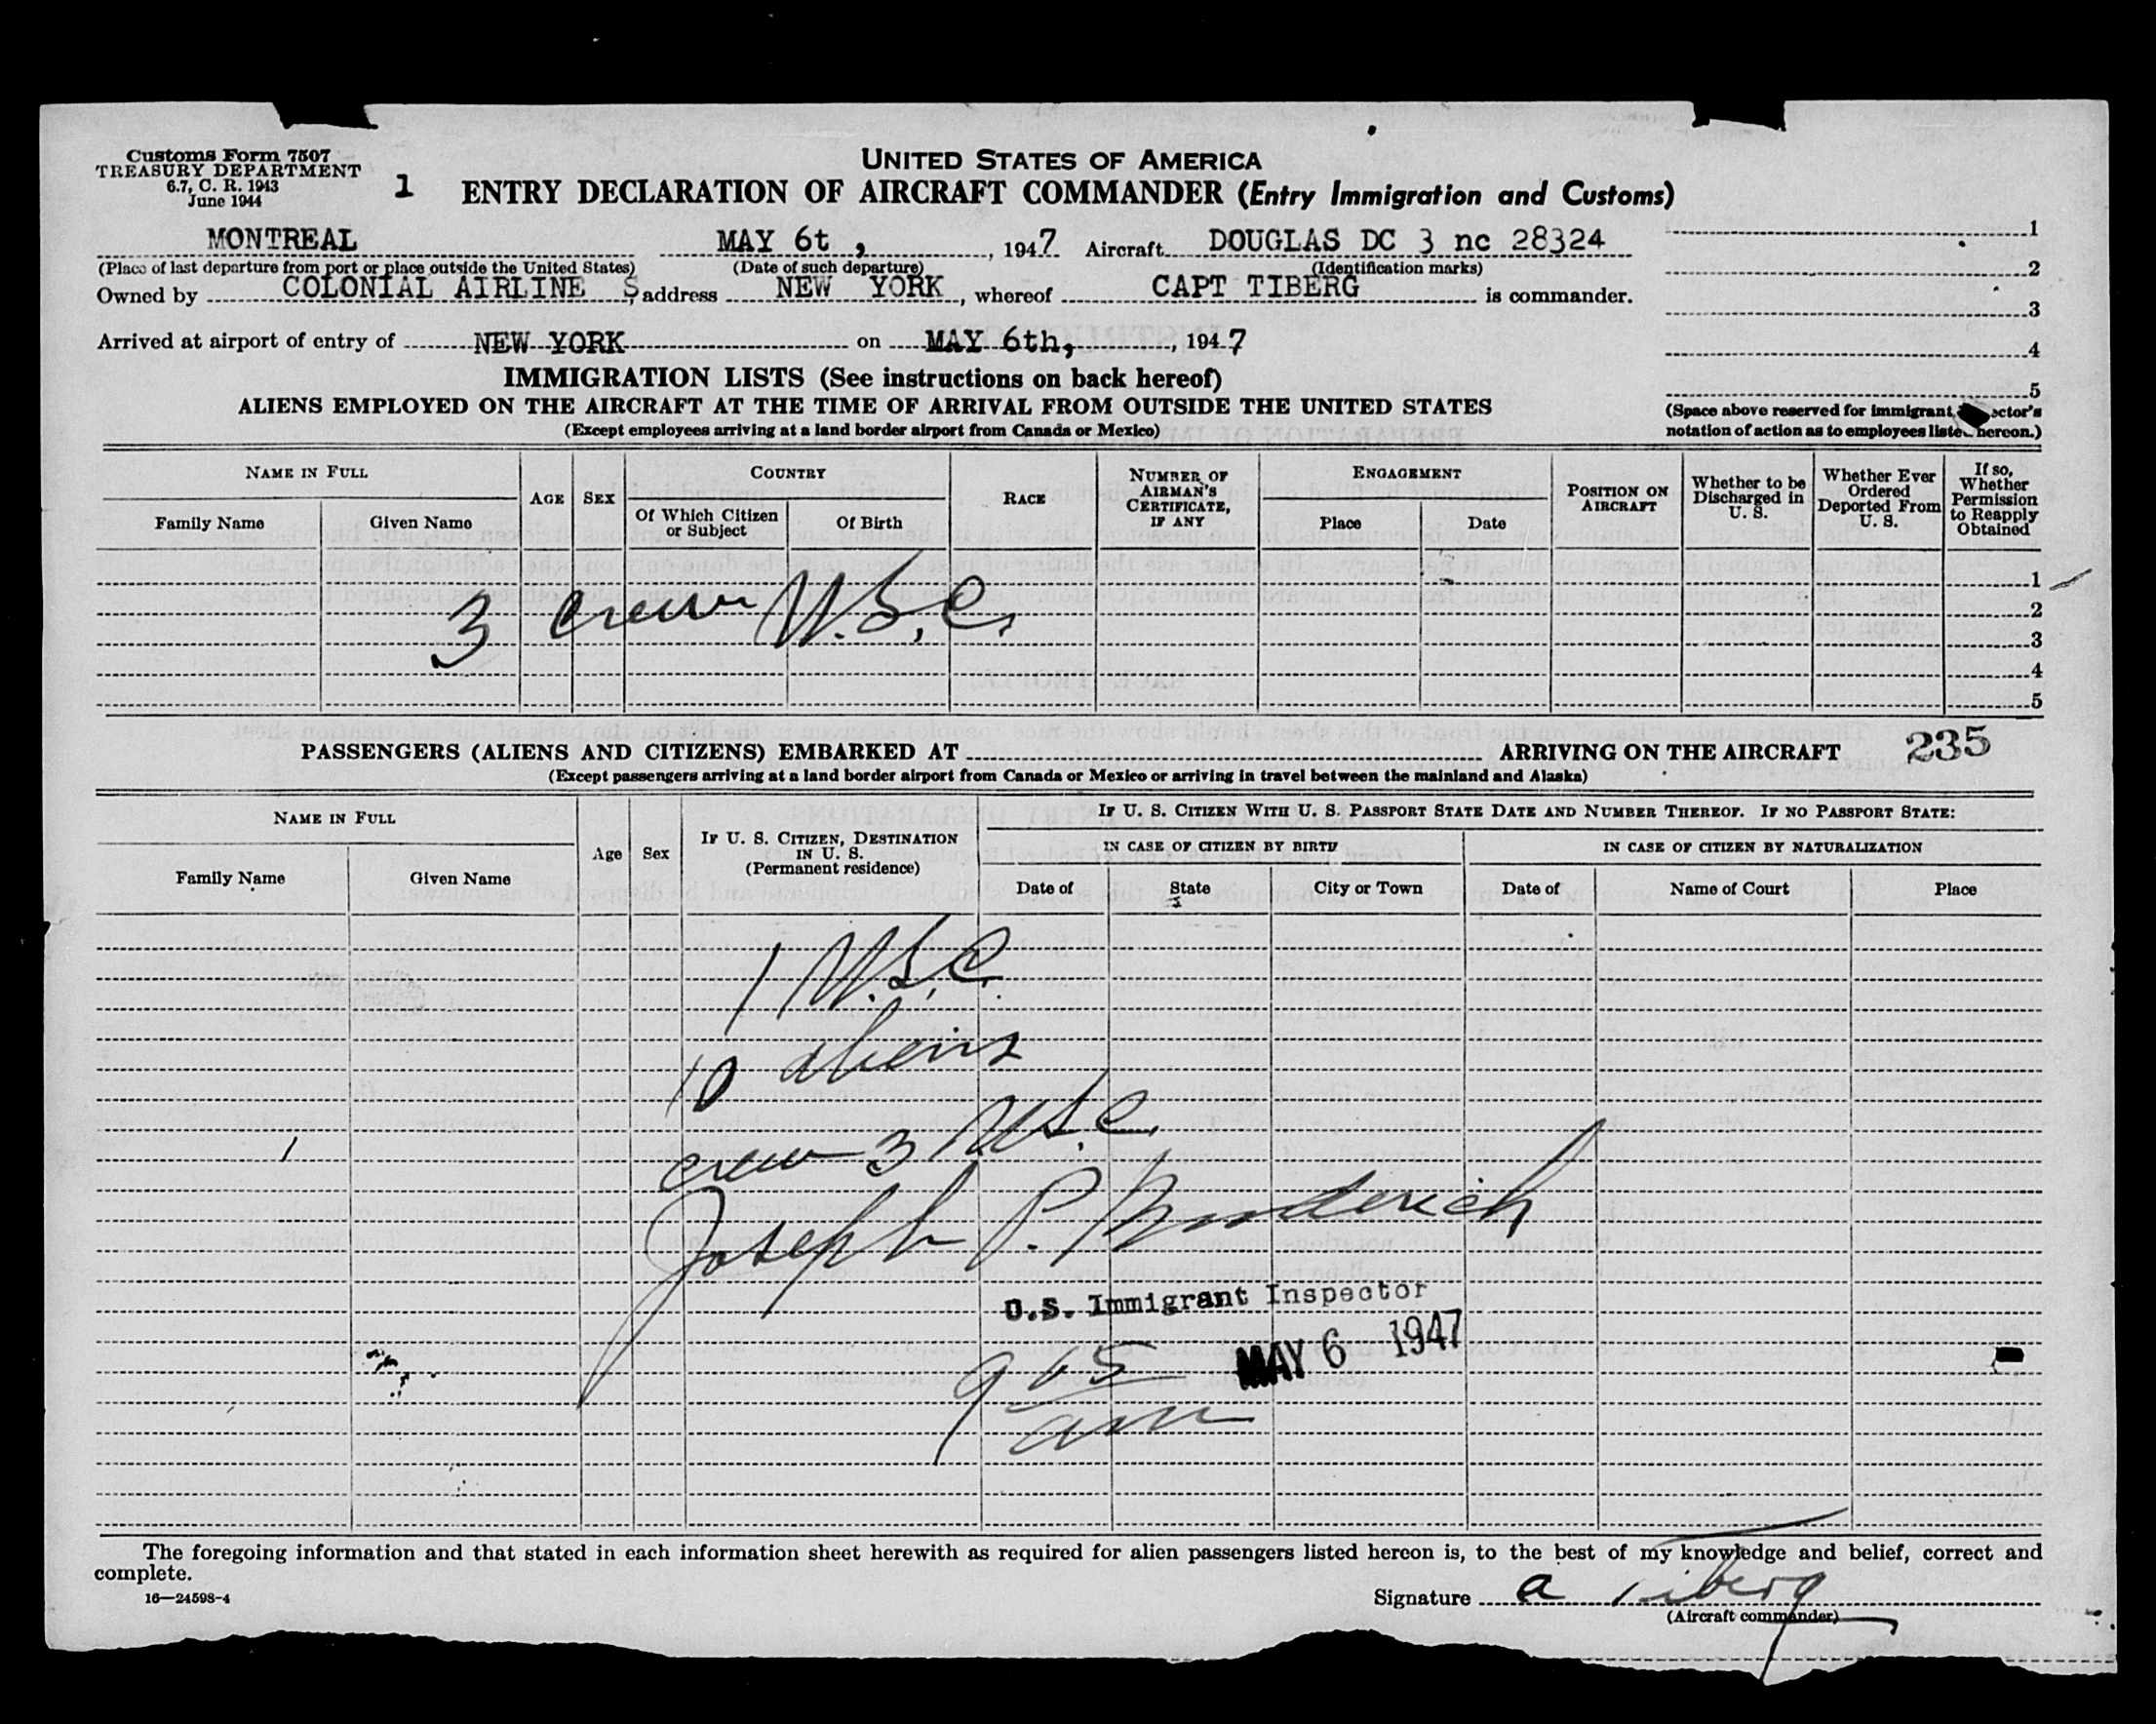 Customs Form 7507
TREASURY DEPARTMENT
6.7, C. R. 1943
June 1944
1
UNITED STATES OF AMERICA
ENTRY DECLARATION OF AIRCRAFT COMMANDER (Entry Immigration and Customs)
MONTREAL MAY 6t , , 1947 Aircraft DOUGLAS DC 3 nc 28324
(Place of last departure from port or place outside the United States) (Date of such departure) (Identification marks)
Owned by COLONIAL AIRLINE S, address NEW YORK, whereof CAPT TIBERG is commander.
Arrived at airport of entry of NEW YORK on MAY 6th, , 1947
1
2
3
4
5
(Space above reserved for immigrant
notation of action as to employees hereon.)
IMMIGRATION LISTS (See instructions on back hereof)
ALIENS EMPLOYED ON THE AIRCRAFT AT THE TIME OF ARRIVAL FROM OUTSIDE THE UNITED STATES
(Except employees arriving at a land border airport from Canada or Mexico)
NAME IN FULL
Family Name Given Name
AGE
SEX
COUNTRY
Of Which Citizen or Subject
Of Birth
RACE
NUMBER OF AIRMAN'S CERTIFICATE, IF ANY
ENGAGEMENT
Place Date
POSITION ON AIRCRAFT
Whether to be Discharged in U. S.
Whether Ever Ordered Deported From U. S.
If so, Whether Permission to Reapply Obtained
3 crew U.S.C.
1
2
3
4
5
PASSENGERS (ALIENS AND CITIZENS) EMBARKED AT ARRIVING ON THE AIRCRAFT 235
(Except passengers arriving at a land border airport from Canada or Mexico or arriving in travel between the mainland and Alaska)
NAME IN FULL
Family Name Given Name
Age
Sex
IF U. S. CITIZEN, DESTINATION IN U. S.
(Permanent residence)
IF U. S. CITIZEN WITH U. S. PASSPORT STATE DATE AND NUMBER THEREOF. IF NO PASSPORT STATE:
IN CASE OF CITIZEN BY BIRTH IN CASE OF CITIZEN BY NATURALIZATION
Date of State City or Town Date of Name of Court Place
1 U.S.C.
10 aliens
crew 3 U.S.C.
Joseph P.
U.S. Immigrant Inspector
MAY 6 1947
9 05
am
The foregoing information and that stated in each information sheet herewith as required for alien passengers listed hereon is, to the best of my knowledge and belief, correct and
complete.
16—24598-4
Signature a Tiberg
(Aircraft commander)